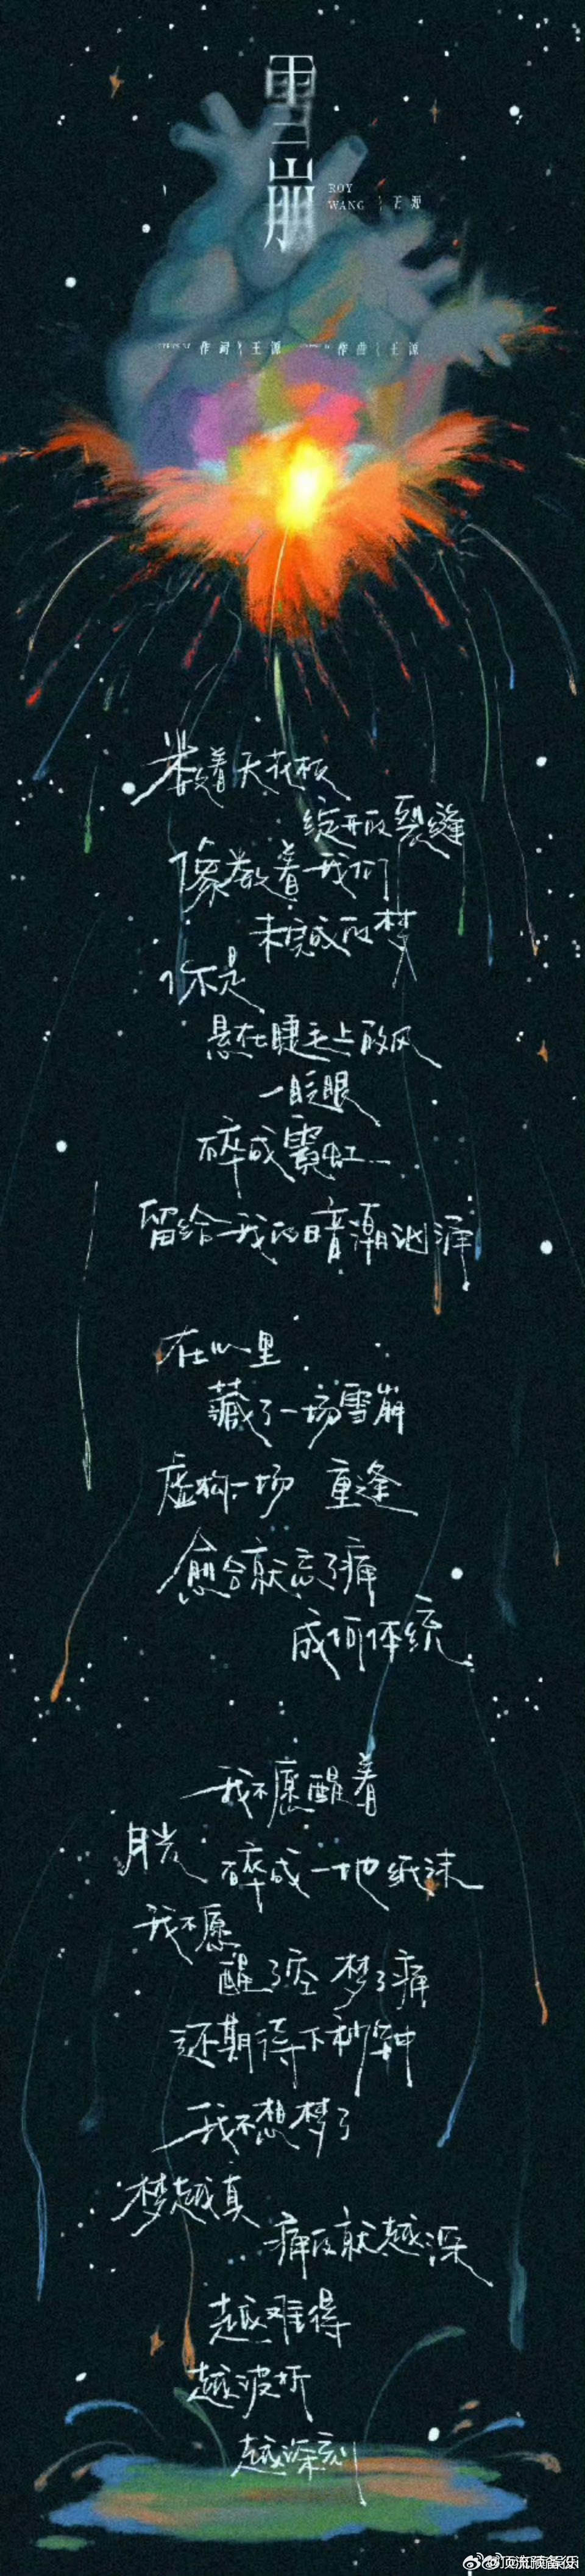 雪崩
ROY
WANG 王源
作词 王源 作曲 王源
数着天花板
绽开的裂缝
像数着我们
未完成的梦
你是
悬在睫毛上的风
一眨眼
碎成霓虹
留给我的暗潮汹涌
在心里
藏了一场雪崩
虚构一场 重逢
愈合就忘了痛
成何体统
我不愿醒着
月光 碎成一地纸沫
我不愿
醒了空 梦了痛
还期待下秒钟
我不想梦了
梦越真
痛的就越深
越难得
越波折
越深刻